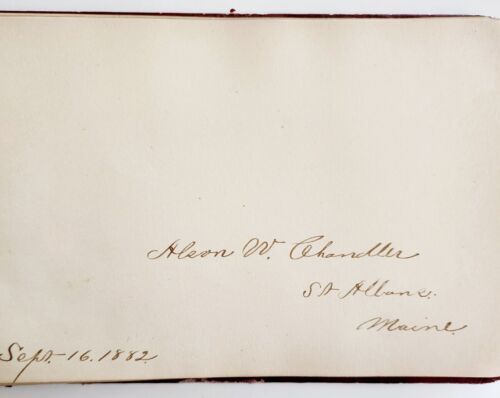 Alson W. Chandler
St Albans.
Maine.
Sept. 16. 1882